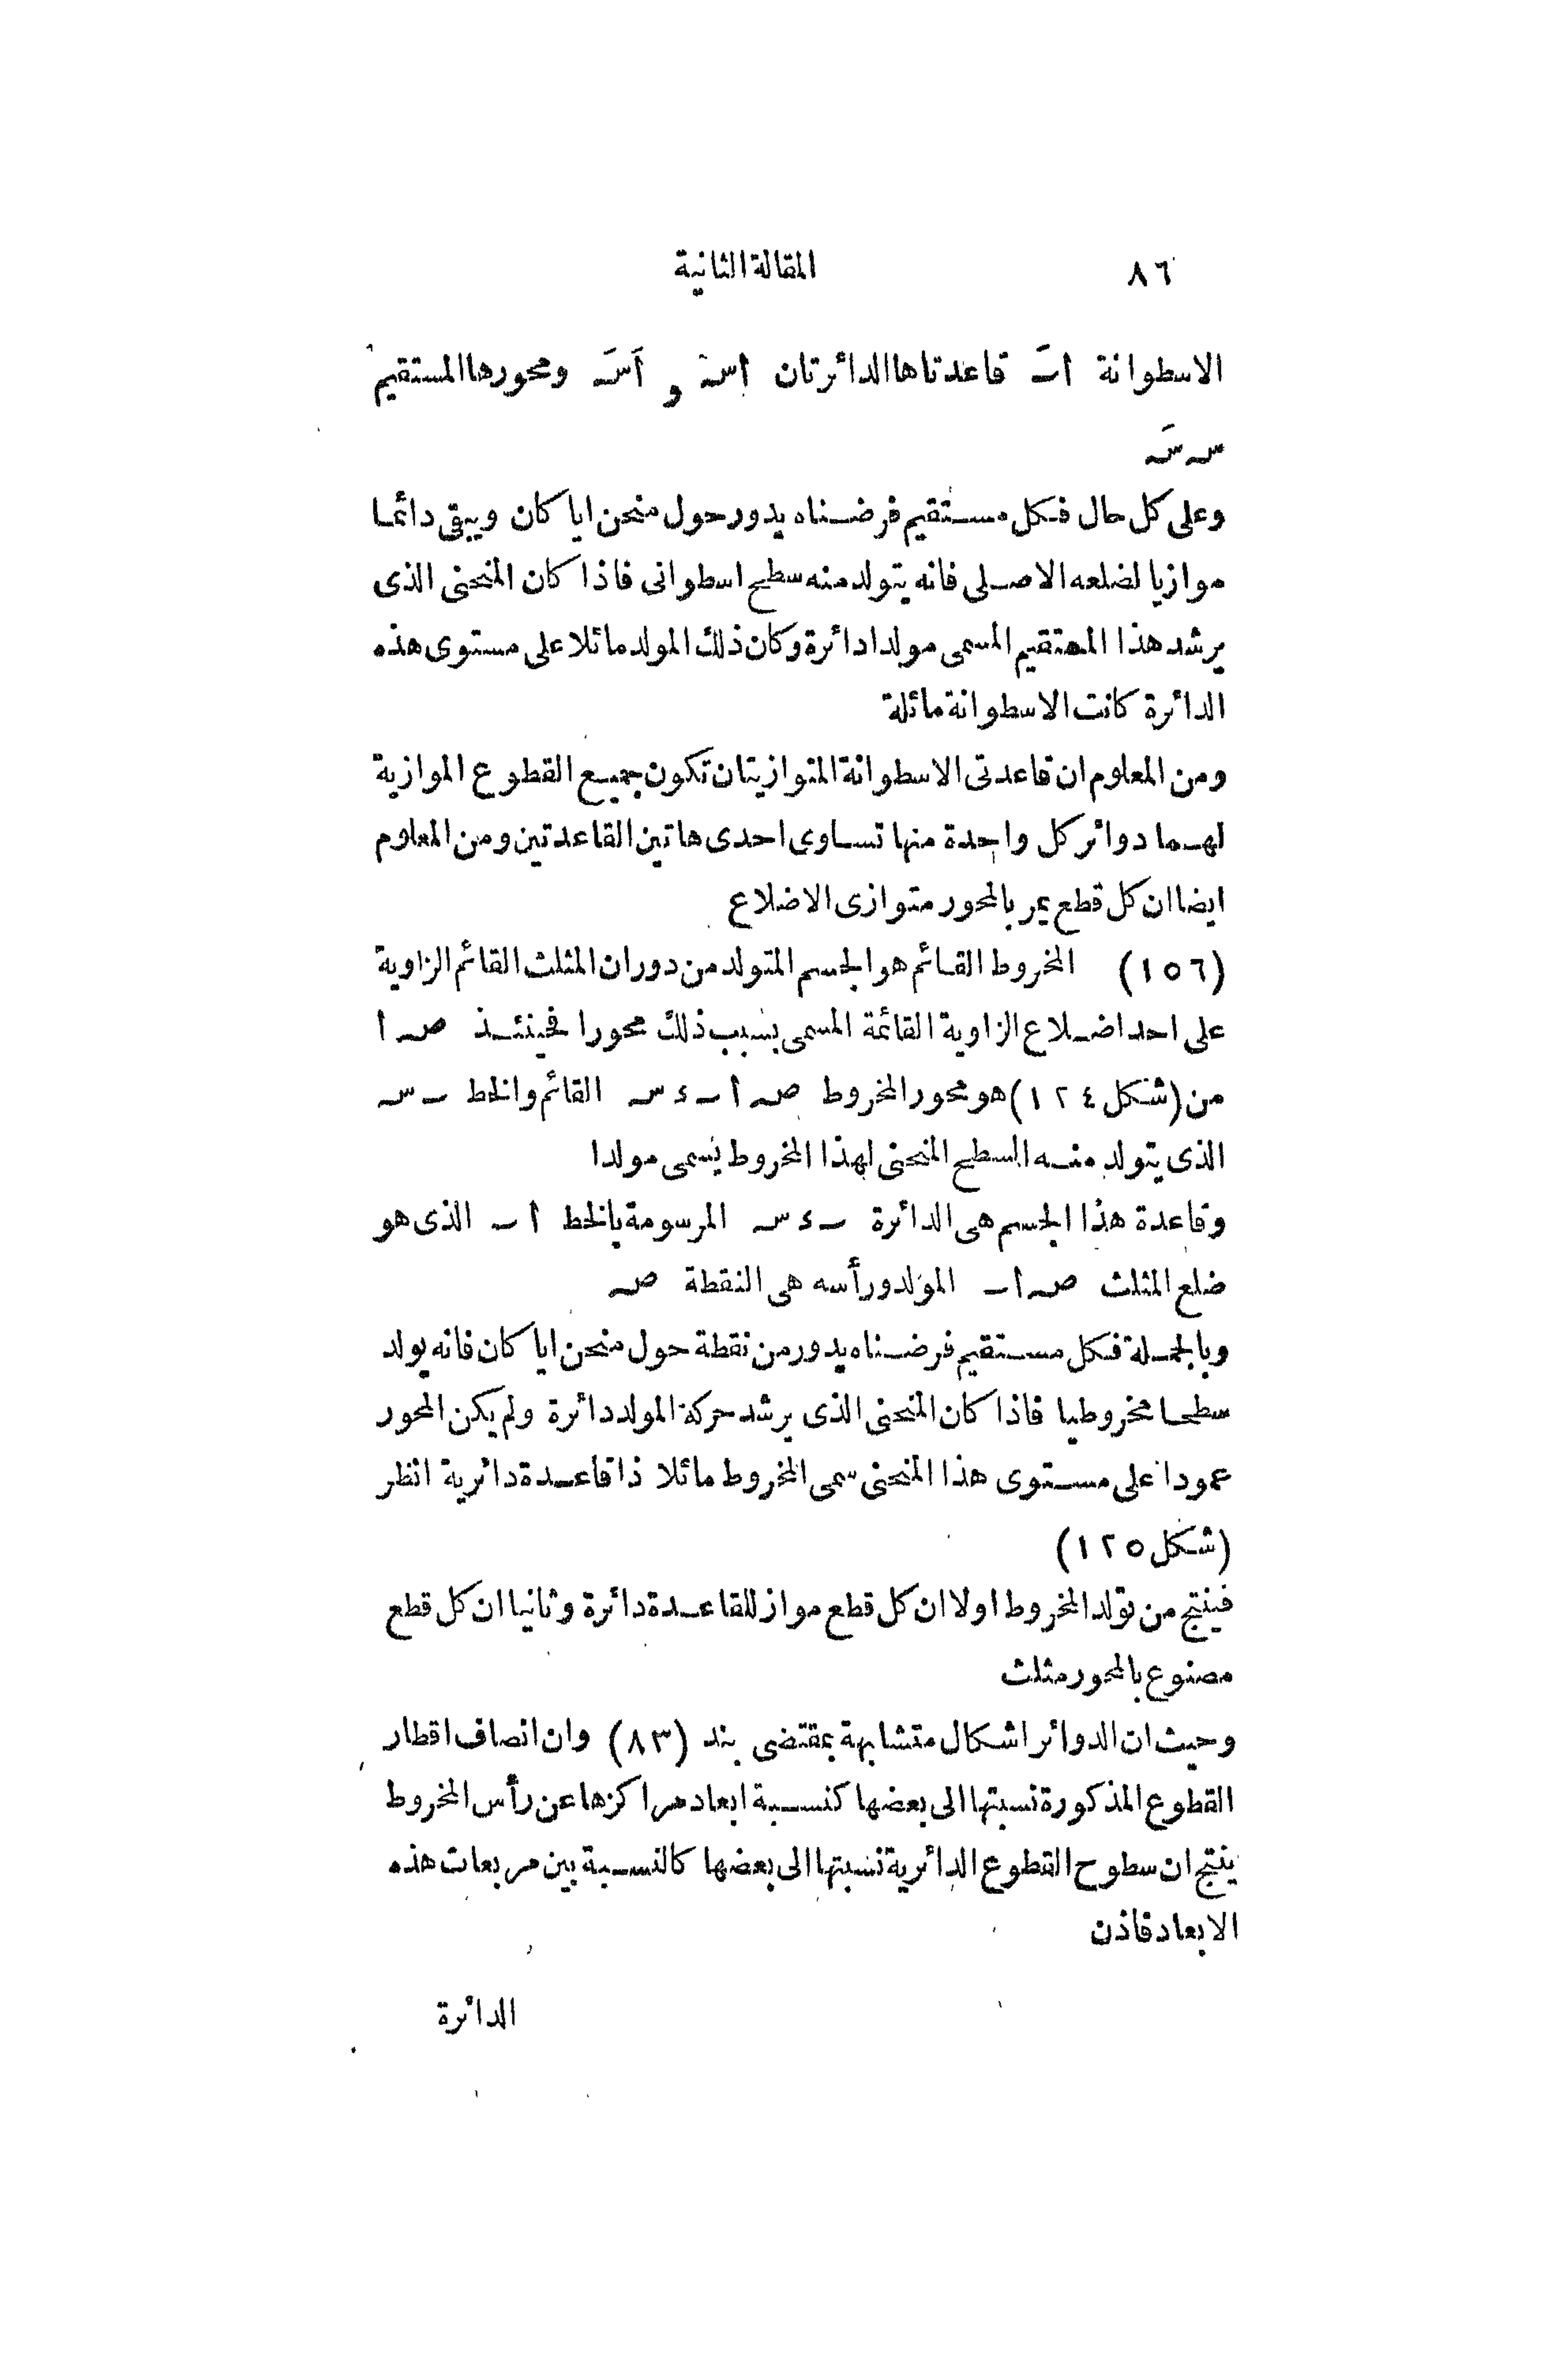 ٨٦ المقالة الثانية
الاسطوانة اٮَ قاعدتاها الدائرتان اسہ و اَسَہ ومحورها المستقيم
سہ سَہ
وعلى كل حال فكل مستقيم فرضناه يدور حول منحن ايا كان ويبقى دائما
موازيا لضلعه الاصلى فانه يتولد منه سطح اسطوانى فاذا كان المنحنى الذى
يرشد هذا المستقيم المسمى مولدا دائرة وكان ذلك المولد مائلا على مستوى هذه
الدائرة كانت الاسطوانة مائلة
ومن المعلوم ان قاعدتى الاسطوانة المتوازيتان تكون جميع القطوع الموازية
لهما دوائر كل واحدة منها تساوى احدى هاتين القاعدتين ومن المعلوم
ايضا ان كل قطع يمر بالمحور متوازى الاضلاع
(١٥٦) المخروط القائم هو الجسم المتولد من دوران المثلث القائم الزاوية
على احد اضلاع الزاوية القائمة المسمى بسبب ذلك محورا فحينئذ صہ ا
من (شكل ١٢٤) هو محور المخروط صہ اٮ ء سہ القائم والخط ٮ سہ
الذى يتولد منه السطح المنحنى لهذا المخروط يسمى مولدا
وقاعدة هذا الجسم هى الدائرة ٮ ء سہ المرسومة بالخط اٮ الذى هو
ضلع المثلث صہ اٮ المولد ورأسه هى النقطة صہ
وبالجملة فكل مستقيم فرضناه يدور من نقطة حول منحن ايا كان فانه يولد
سطحا مخروطيا فاذا كان المنحنى الذى يرشد حركة المولد دائرة ولم يكن المحور
عمودا على مستوى هذا المنحنى سمى المخروط مائلا ذا قاعدة دائرية انظر
(شكل ١٢٥)
فينتج من تولد المخروط اولا ان كل قطع مواز للقاعدة دائرة وثانيا ان كل قطع
مصنوع بالمحور مثلث
وحيث ان الدوائر اشكال متشابهة بمقتضى بند (٨٣) وان انصاف اقطار
القطوع المذكورة نسبتها الى بعضها كنسبة ابعاد مراكزها عن رأس المخروط
ينتج ان سطوح القطوع الدائرية نسبتها الى بعضها كالنسبة بين مربعات هذه
الابعاد فاذن
الدائرة